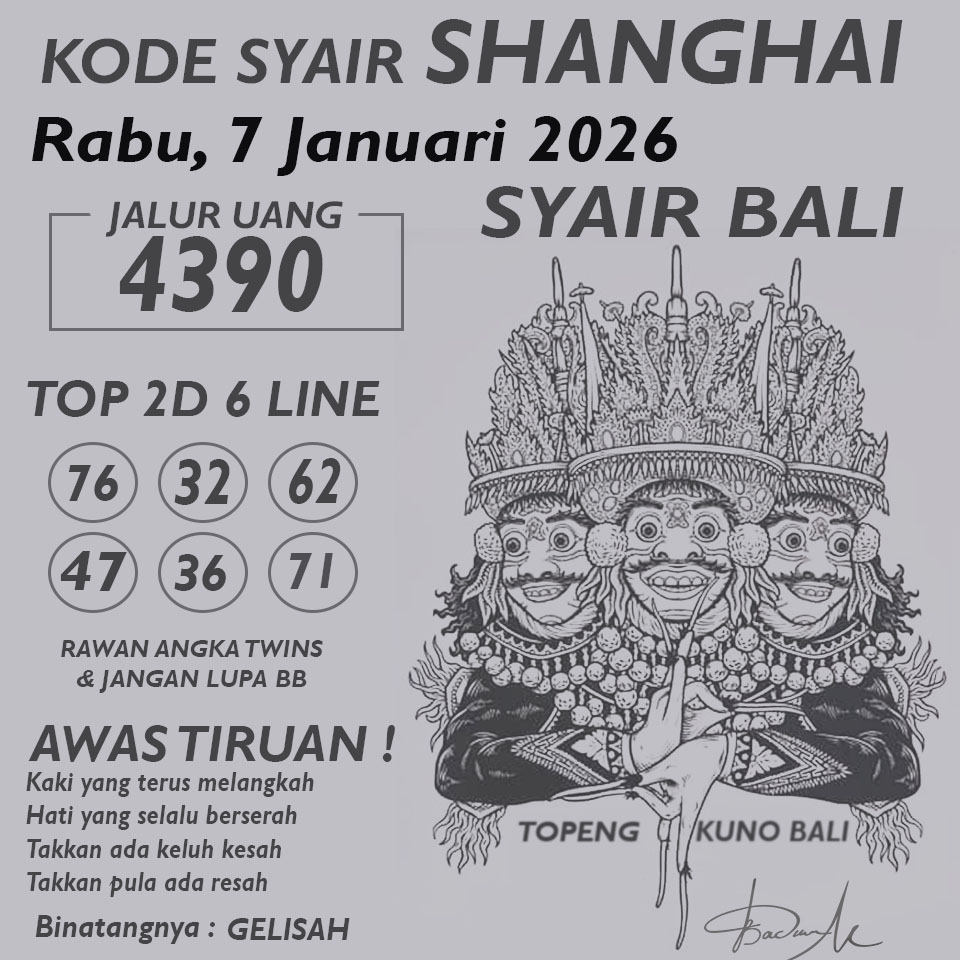 KODE SYAIR SHANGHAI
Rabu, 7 Januari 2026
SYAIR BALI
JALUR UANG
4390
TOP 2D 6 LINE
76 32 62
47 36 71
RAWAN ANGKA TWINS
& JANGAN LUPA BB
AWAS TIRUAN !
Kaki yang terus melangkah
Hati yang selalu berserah
Takkan ada keluh kesah
Takkan pula ada resah
Binatangnya : GELISAH
TOPENG KUNO BALI